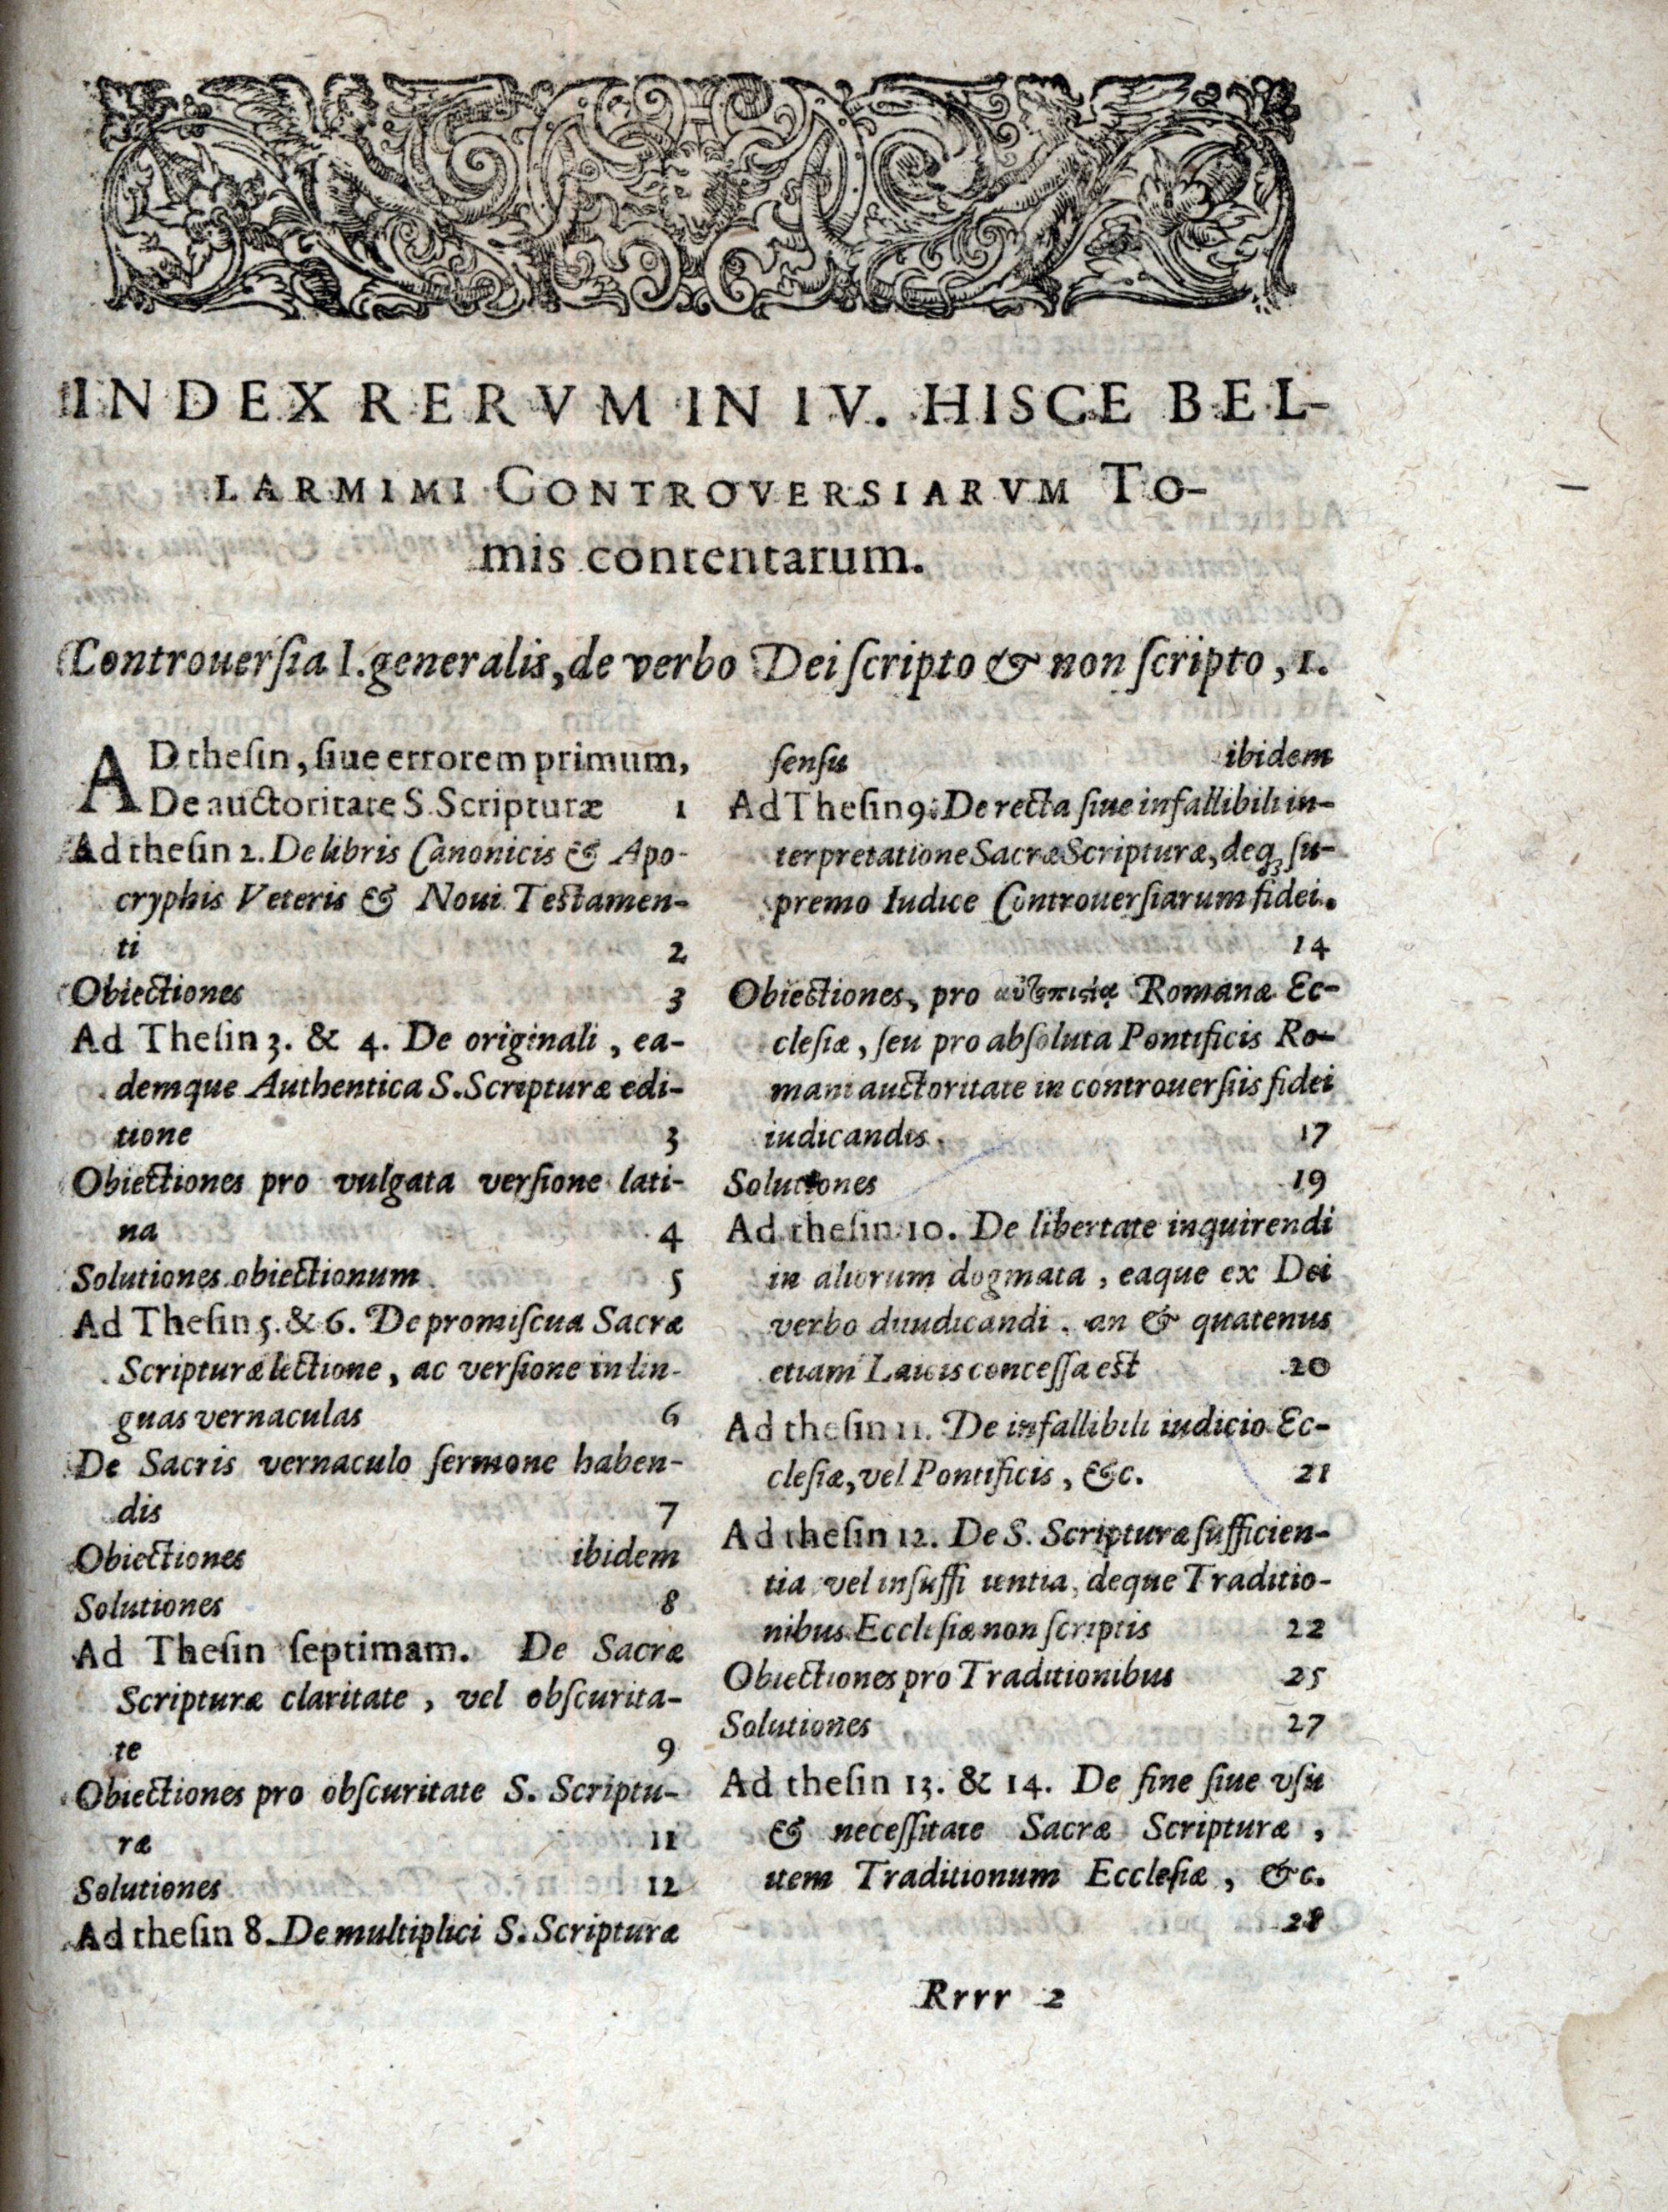 INDEX RERVM IN IV. HISCE BEL-
LARMIMI CONTROVERSIARVM TO-
mis contentarum.
Controuerſia I. generalis, de verbo Dei ſcripto & non ſcripto, 1.
AD theſin, ſiue errorem primum,
De auctoritate S. Scripturæ 1
Ad theſin 2. De libris Canonicis & Apo-
cryphis Veteris & Noui Teſtamen-
ti 2
Obiectiones 3
Ad Theſin 3. & 4. De originali, ea-
demque Authentica S. Scripturæ edi-
tione 3
Obiectiones pro vulgata verſione lati-
na 4
Solutiones obiectionum 5
Ad Theſin 5. & 6. De promiſcua Sacræ
Scripturæ lectione, ac verſione in lin-
guas vernaculas 6
De Sacris vernaculo ſermone haben-
dis 7
Obiectiones ibidem
Solutiones 8
Ad Theſin ſeptimam. De Sacræ
Scripturæ claritate, vel obſcurita-
te 9
Obiectiones pro obſcuritate S. Scriptu-
ræ 11
Solutiones 12
Ad theſin 8. De multiplici S. Scripturæ
ſenſu ibidem
Ad Theſin 9. De recta ſiue infallibili in-
terpretatione Sacræ Scripturæ, deq; ſu-
premo Iudice Controuerſiarum fidei.
14
Obiectiones, pro Romanæ Ec-
cleſiæ, ſeu pro abſoluta Pontificis Ro-
mani auctoritate in controuerſiis fidei
iudicandis. 17
Solutiones 19
Ad theſin 10. De libertate inquirendi
in aliorum dogmata, eaque ex Dei
verbo diiudicandi. an & quatenus
etiam Laicis conceſſa eſt 20
Ad theſin 11. De infallibili iudicio Ec-
cleſiæ, vel Pontificis, &c. 21
Ad theſin 12. De S. Scripturæ ſufficien-
tia vel inſuffi ientia, deque Traditio-
nibus Eccleſiæ non ſcriptis 22
Obiectiones pro Traditionibus 25
Solutiones 27
Ad theſin 13. & 14. De fine ſiue vſu
& neceſſitate Sacræ Scripturæ,
item Traditionum Eccleſiæ, &c.
28
Rrrr 2